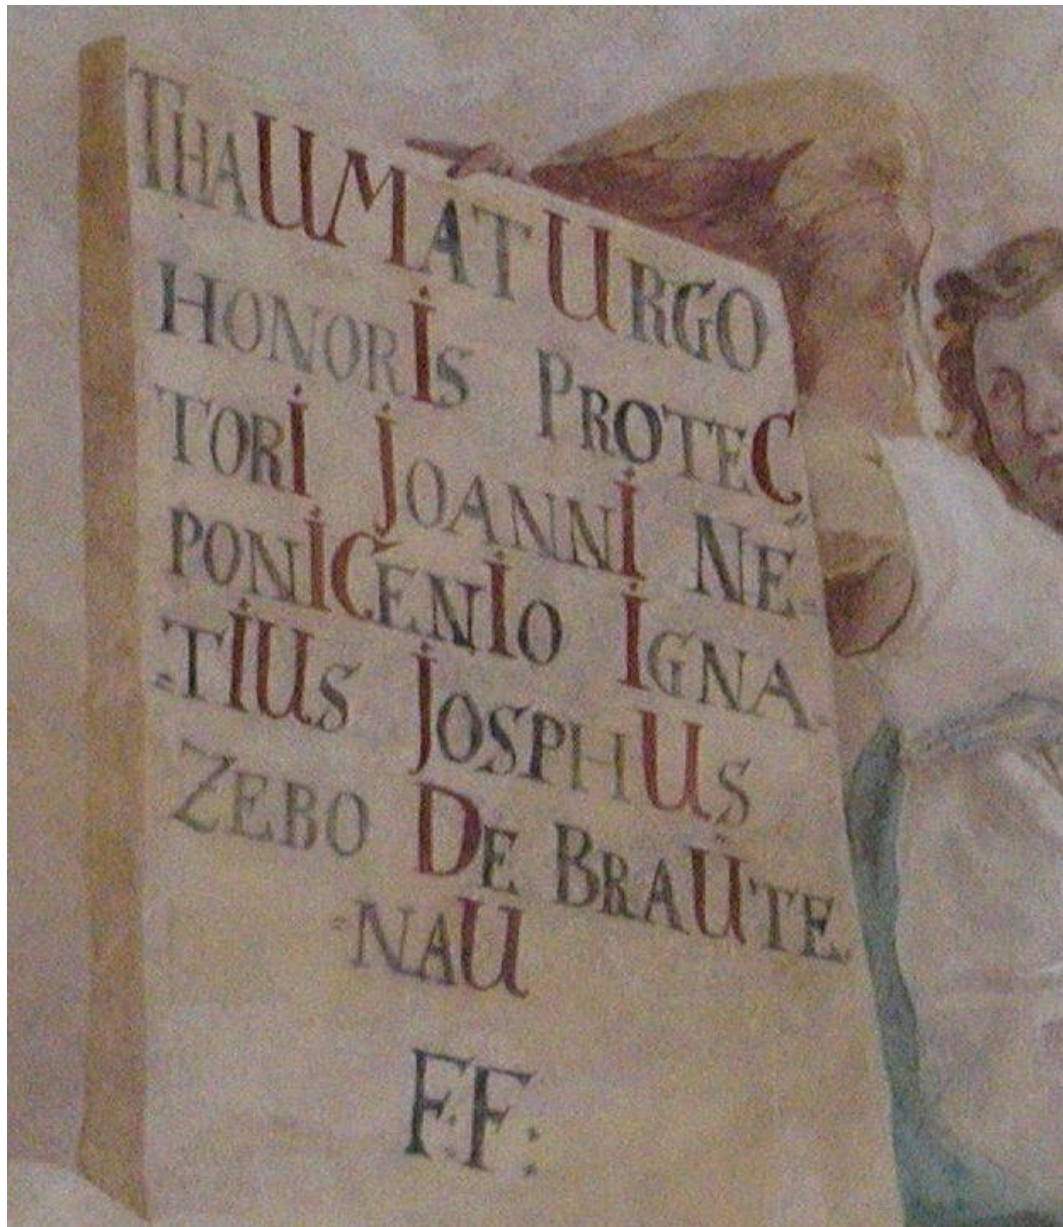 THAUMATURGO
HONORIS PROTEC
TORI JOANNI NE=
PONICENIO IGNA=
=TIUS JOSPHUS
ZEBO DE BRAUTE
=NAU
F:F: